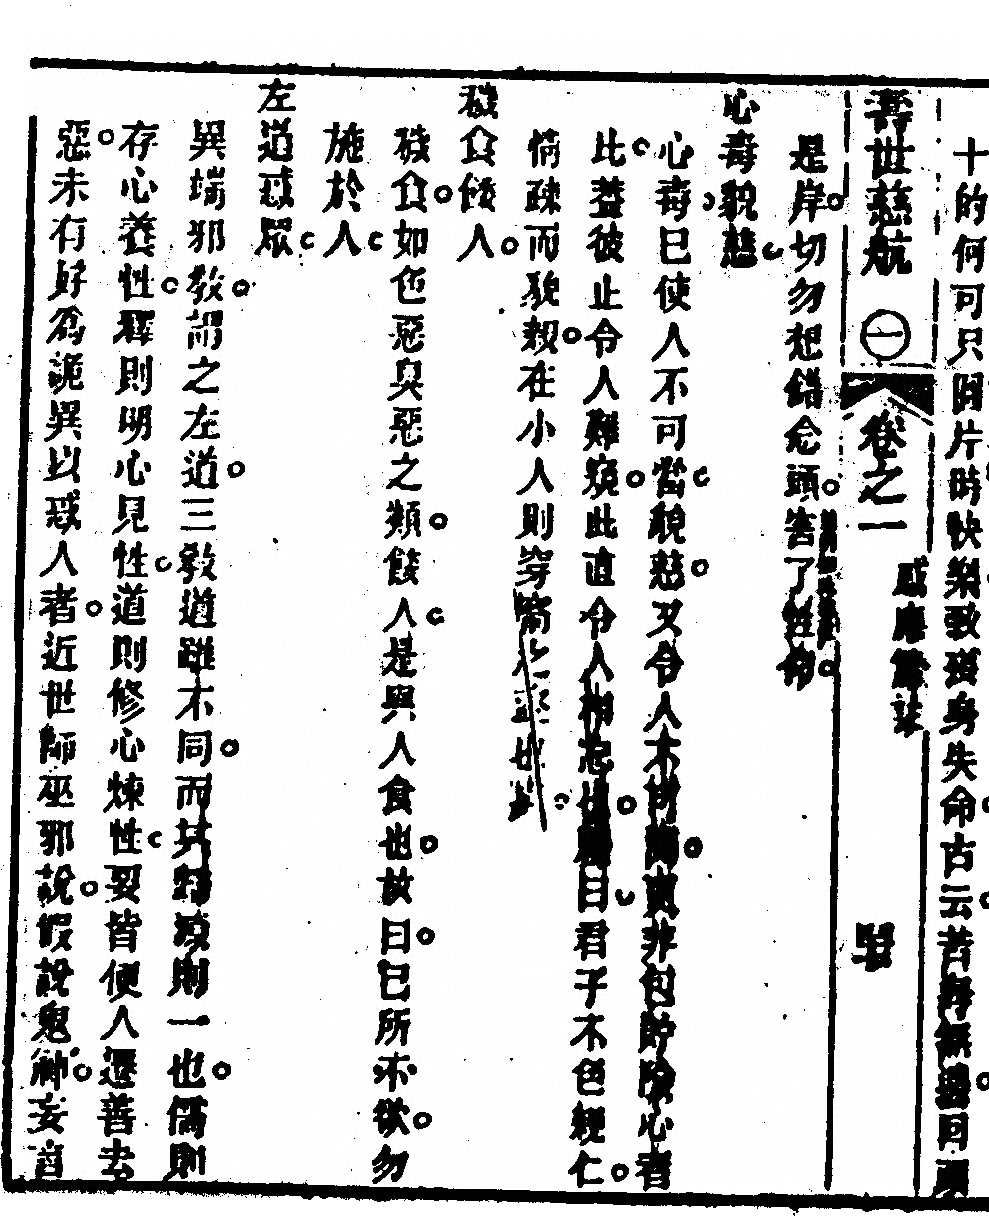 十的何可只圖片時快樂致喪身失命古云苦海無邊回頭
壽世慈航 一 卷之一 感應篇註
是岸切勿想錯念頭害了性命
心毒貌慈
心毒已使人不可當貌慈又令人不可測非包貯險心者
此蓋彼止令人難窺此直令人 曰君子不色親仁
情疎而貌親在小人則穿窬之盜也
穢食餧人
穢食如色惡臭惡之類餧人是與人食也故曰己所不欲勿
施於人
左道惑眾
異端邪教謂之左道三教道雖不同而其歸源則一也儒則
存心養性釋則明心見性道則修心煉性要皆便人遷善去
惡未有好為詭異以惑人者近世師巫邪說假說鬼神妄言